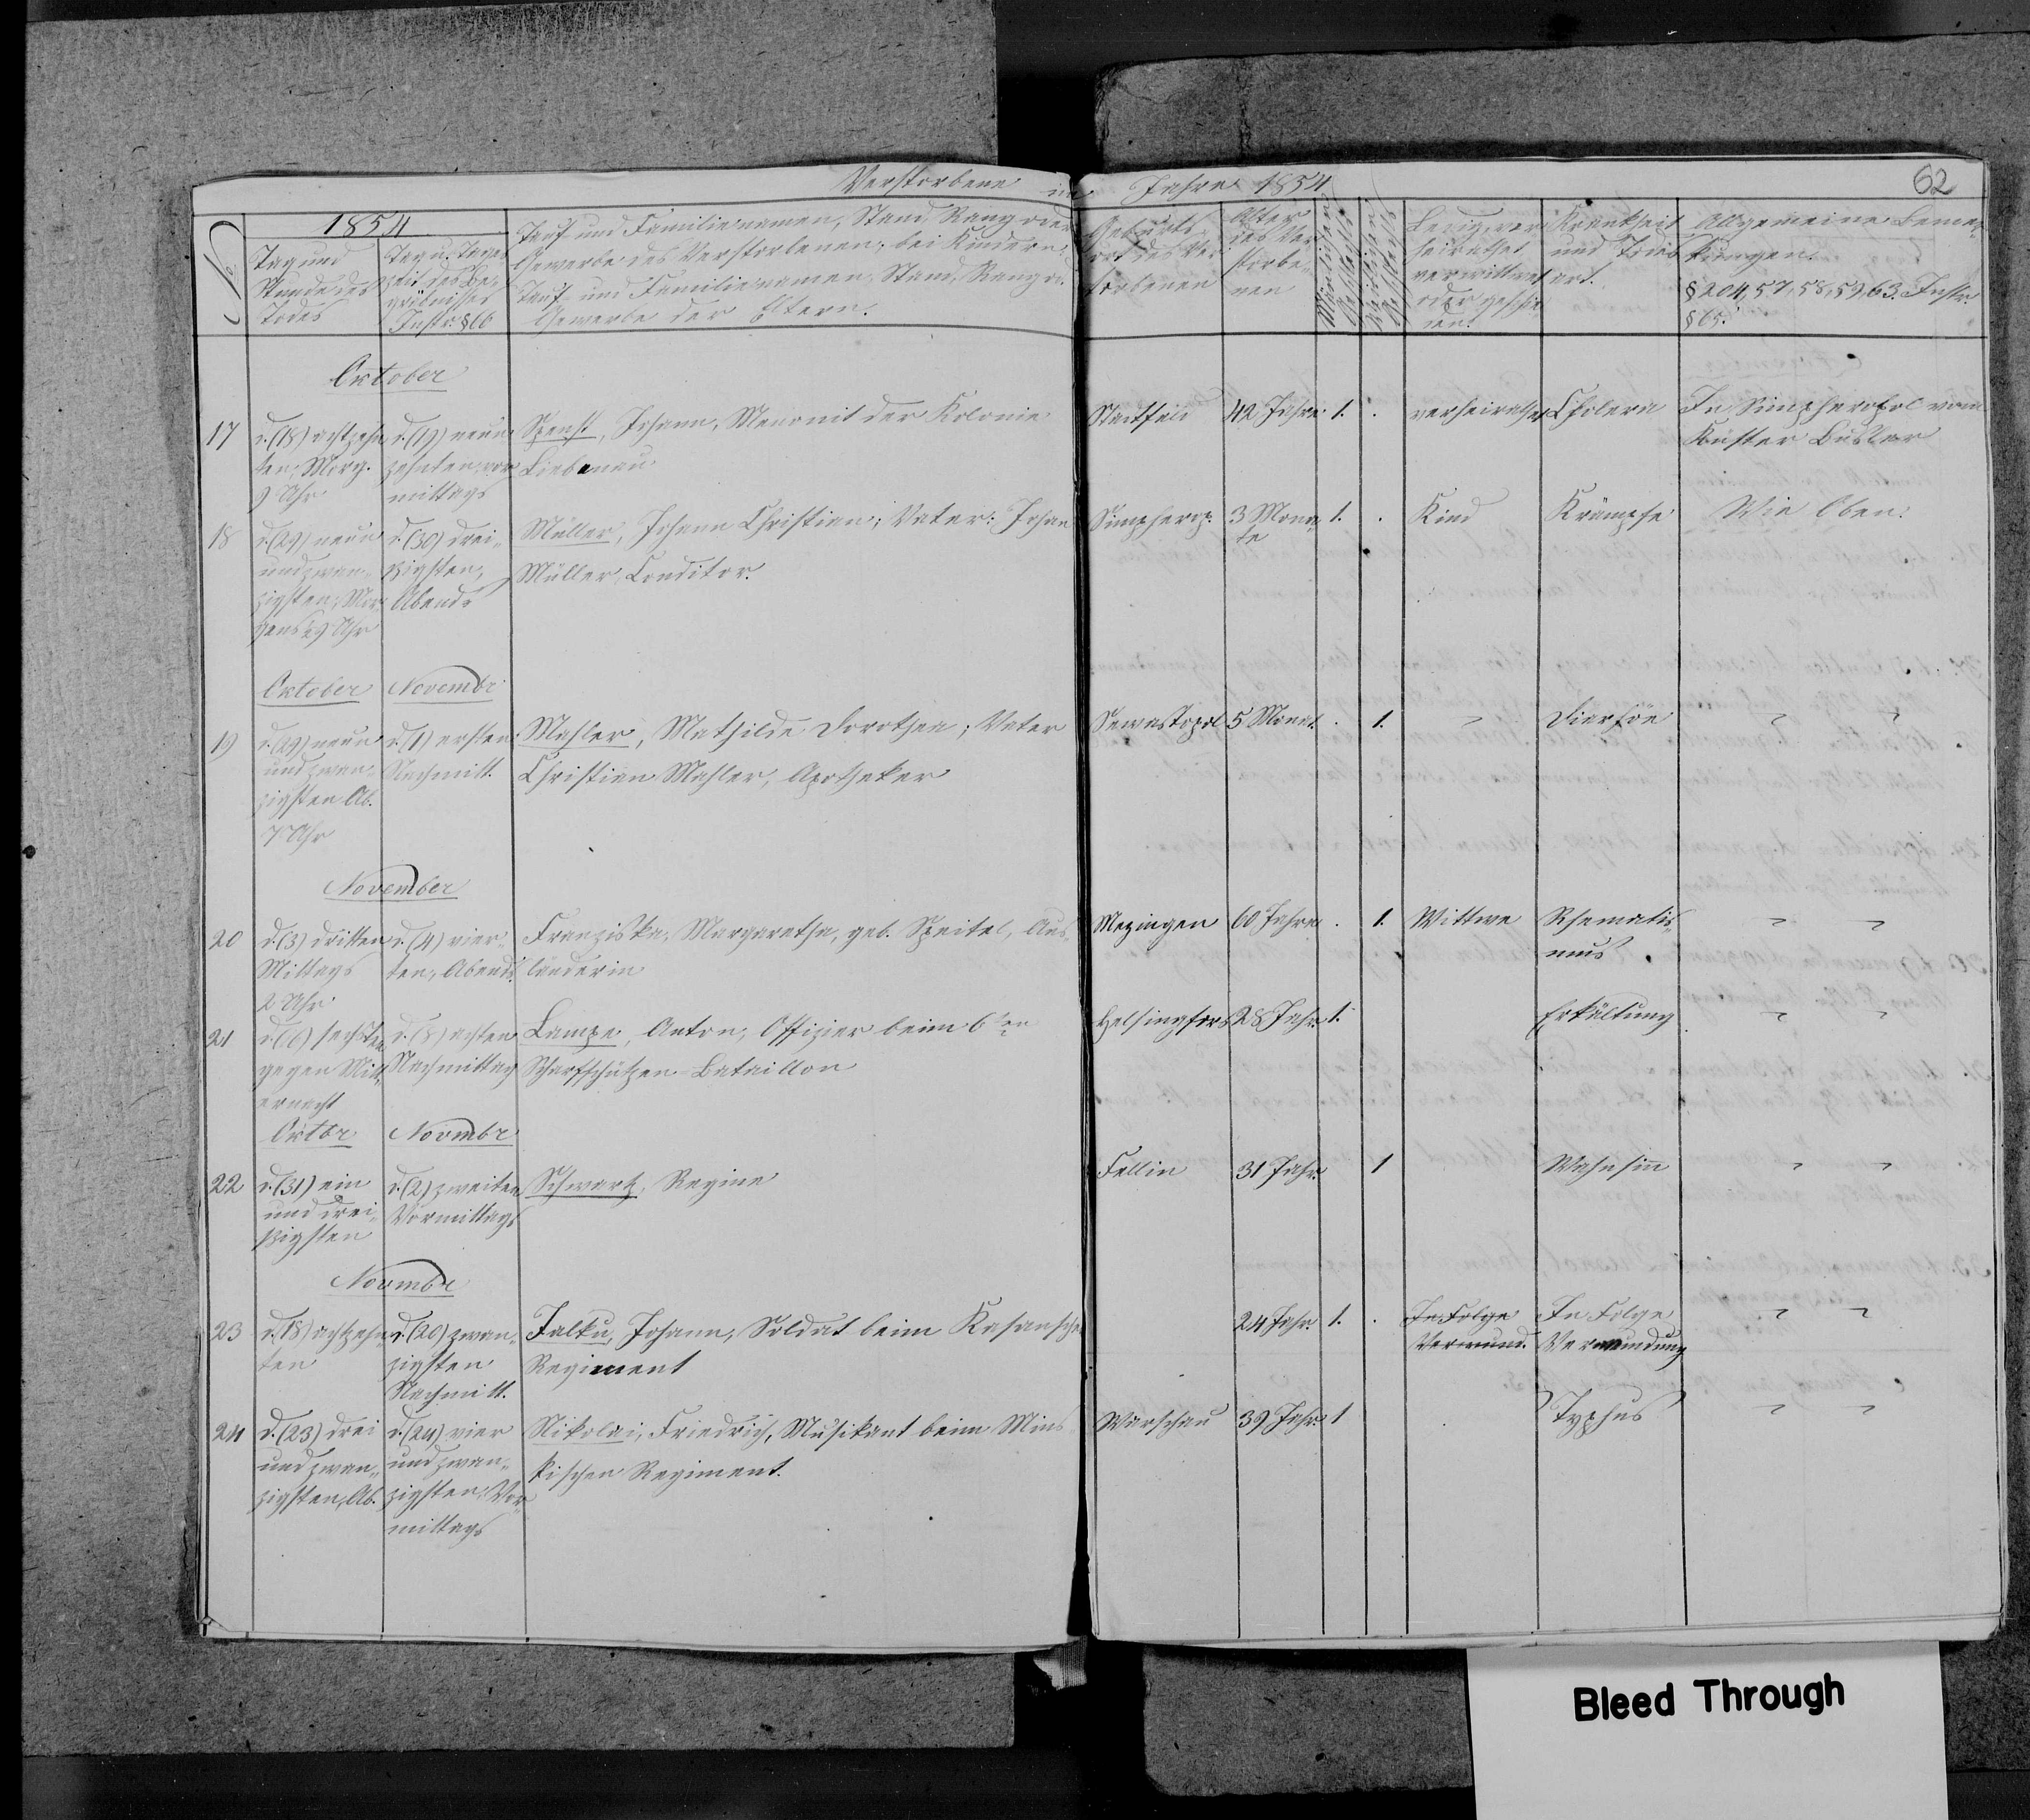 Verstorbene im Jahre 1854
62
No
1854
Tag und
Stunde des
Todes
Tag u. Tages
zeit des Be-
gräbnisses
Instr: § 66
Tauf- und Familiennamen, Stand, Rang oder
Gewerbe des Verstorbenen; bei Kindern:
Tauf- und Familiennamen, Stand, Rang od.
Gewerbe der Eltern.
Geburts
ort des Ver
storbenen
Alter
des Ver
storbe-
nen
Männlichen
Geschlechts
Weiblichen
Geschlechts
Ledig, ver
heirathet
verwittwet
oder geschie
den.
Krankheit
und Todes
art.
Allgemeine Bemer-
kungen.
§ 204, 57, 58, 59, 63. Instr.
§ 65.
Oktober
17
d. (18) achtzehn
ten, Morg.
9 Uhr
d. (19) neun
zehnten, vor
mittags
Spenst, Johann, Menonit der Kolonie
Liebenau
42 Jahre
1.
.
verheirathet
Cholera
In Simpheropol vom
Küster Busler
18
d. (29) neun
und zwan-
zigsten, Mor-
gens 9 Uhr
d. (30) drei-
ßigsten,
Abends
Müller, Johann Christian; Vater: Johan
Müller, Conditor.
Simpherop.
3 Mona
te
1.
.
Kind
Krämpfe
Wie Oben.
Oktober
Novembr
19
d. (29) neun
und zwan-
zigsten Ab.
7 Uhr
d. (1) ersten
Nachmitt.
Mahler, Mathilde Dorothea; Vater
Christian Mahler, Apotheker
Sewastopol
5 Monat.
.
1.
"
Diarhöe
" "
November
20
d. (3) dritten
Mittags
2 Uhr
d. (4) vier-
ten, Abends
Franziska, Margaretha, geb. Speitel, Aus-
länderin
Mezingen
60 Jahre
.
1.
Wittwe
Rhematis-
mus
" "
21
d. (6) sechsten
gegen Mitt-
ernacht
d. (8) achten
Nachmittag
Lampe, Anton, Offizier beim 6ten
Scharfschützen-Bataillon
Helsingfors
28 Jahr.
1.
Erkältung
" "
Oktbr
Novmbr
22
d. (31) ein
und drei-
ßigsten
d. (2) zweiten
Vormittags
Schwartz, Regine
Fellin
31 Jahr.
1
Wahnsinn
" "
Novmbr
23
d. (18) achtzehn-
ten
d. (20) zwan-
zigsten
Nachmitt.
Falku, Johann, Soldat beim Kasansche
Regiment
24 Jahr.
1.
.
In Folge
Verwund.
In Folge
Verwundung
" "
24
d. (23) drei
und zwan-
zigsten, Ab.
d. (24) vier
und zwan-
zigsten, Vor
mittags
Nikolai, Friedrich, Musikant beim Mins-
kischen Regiment.
Warschau
39 Jahr.
1
.
Typhus
" "
Bleed Through